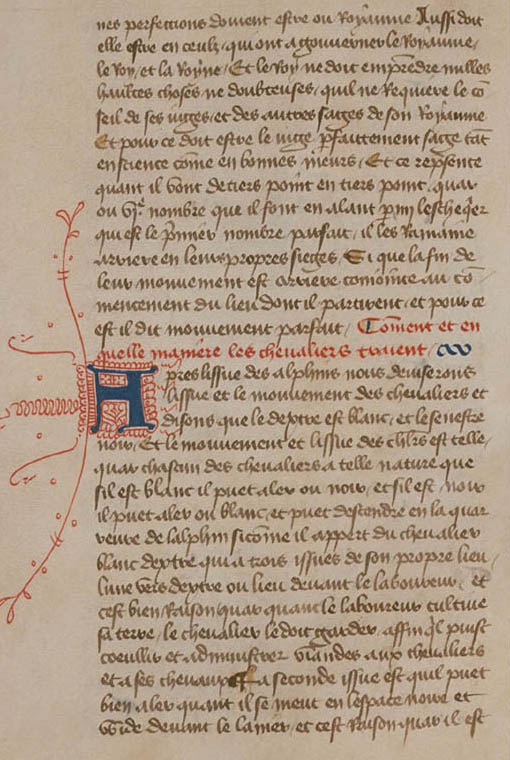 nes perfections doivent estre ou Royaume Aussi doit
elle estre en ceulz, qui ont a gouverner le Royaume,
le Roy, et la Royne, Et le Roy ne doit emprendre nulles
haultes choses ne doubteuses, quil ne Requiere le cō
seil de ses iuges, et des autres sages de son Royaume
Et pour ce doit estre le iuge parfaittement sage tāt
en science cōme en bonnes meurs, Et ce rep̄sente
quant il vont de tiers point en tiers point, quar
ou vj.e nombre que il font en alant p̄mi leschequier
qui est le p̄mier nombre parfait, il les Ramaine
arriere en leurs propres sieges, Si que la fin de
leur mouuement est arriere cōiointe au cō
mencement du lieu dont il partirent, et pour ce
est il dit mouuement parfait, Cōment et en
quelle maniere les chevaliers traient,
Apres lissue des alphins nous deviserons
lissue et le mouuement des chevaliers et
disons que le dextre est blanc, et le senestre
noir, Et le mouuement et lissue des chl̄rs est telle,
quar chascun des chevaliers a telle nature que
sil est blanc il puet aler ou noir, et sil est noir
il puet aler ou blanc, et puet descendre en la quar
reure de lalphin si cōme il appert du chevalier
blanc dextre qui a trois issues de son propre lieu,
lune vers dextre ou lieu devant le laboureur, et
cest bien Raison quar quant le laboureur cultive
sa terre, le chevalier le doit garder, affin q̄l puist
coeullir et administrer viandes aux chevaliers
et a ses chevaux La seconde issue est quil puet
bien aler quant il se meut en lespace noire et
wide devant le lanier, et cest Raison quar il est